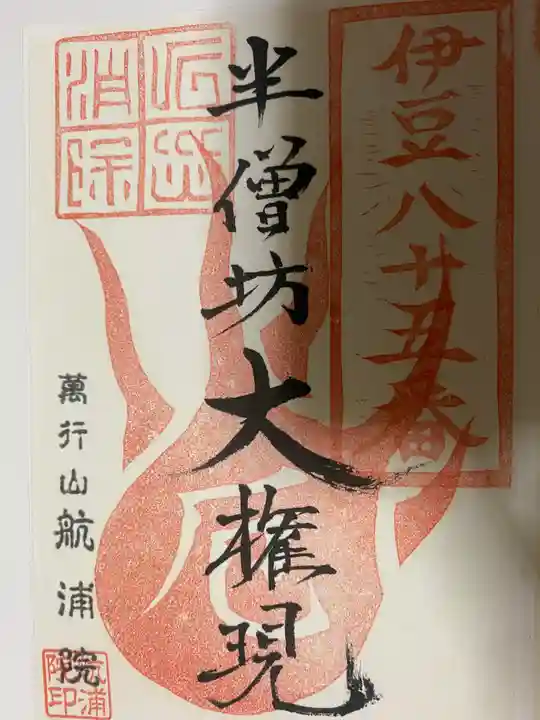 伊豆八十五番
半僧坊大権現
厄災消除
萬行山航浦院
航浦院印